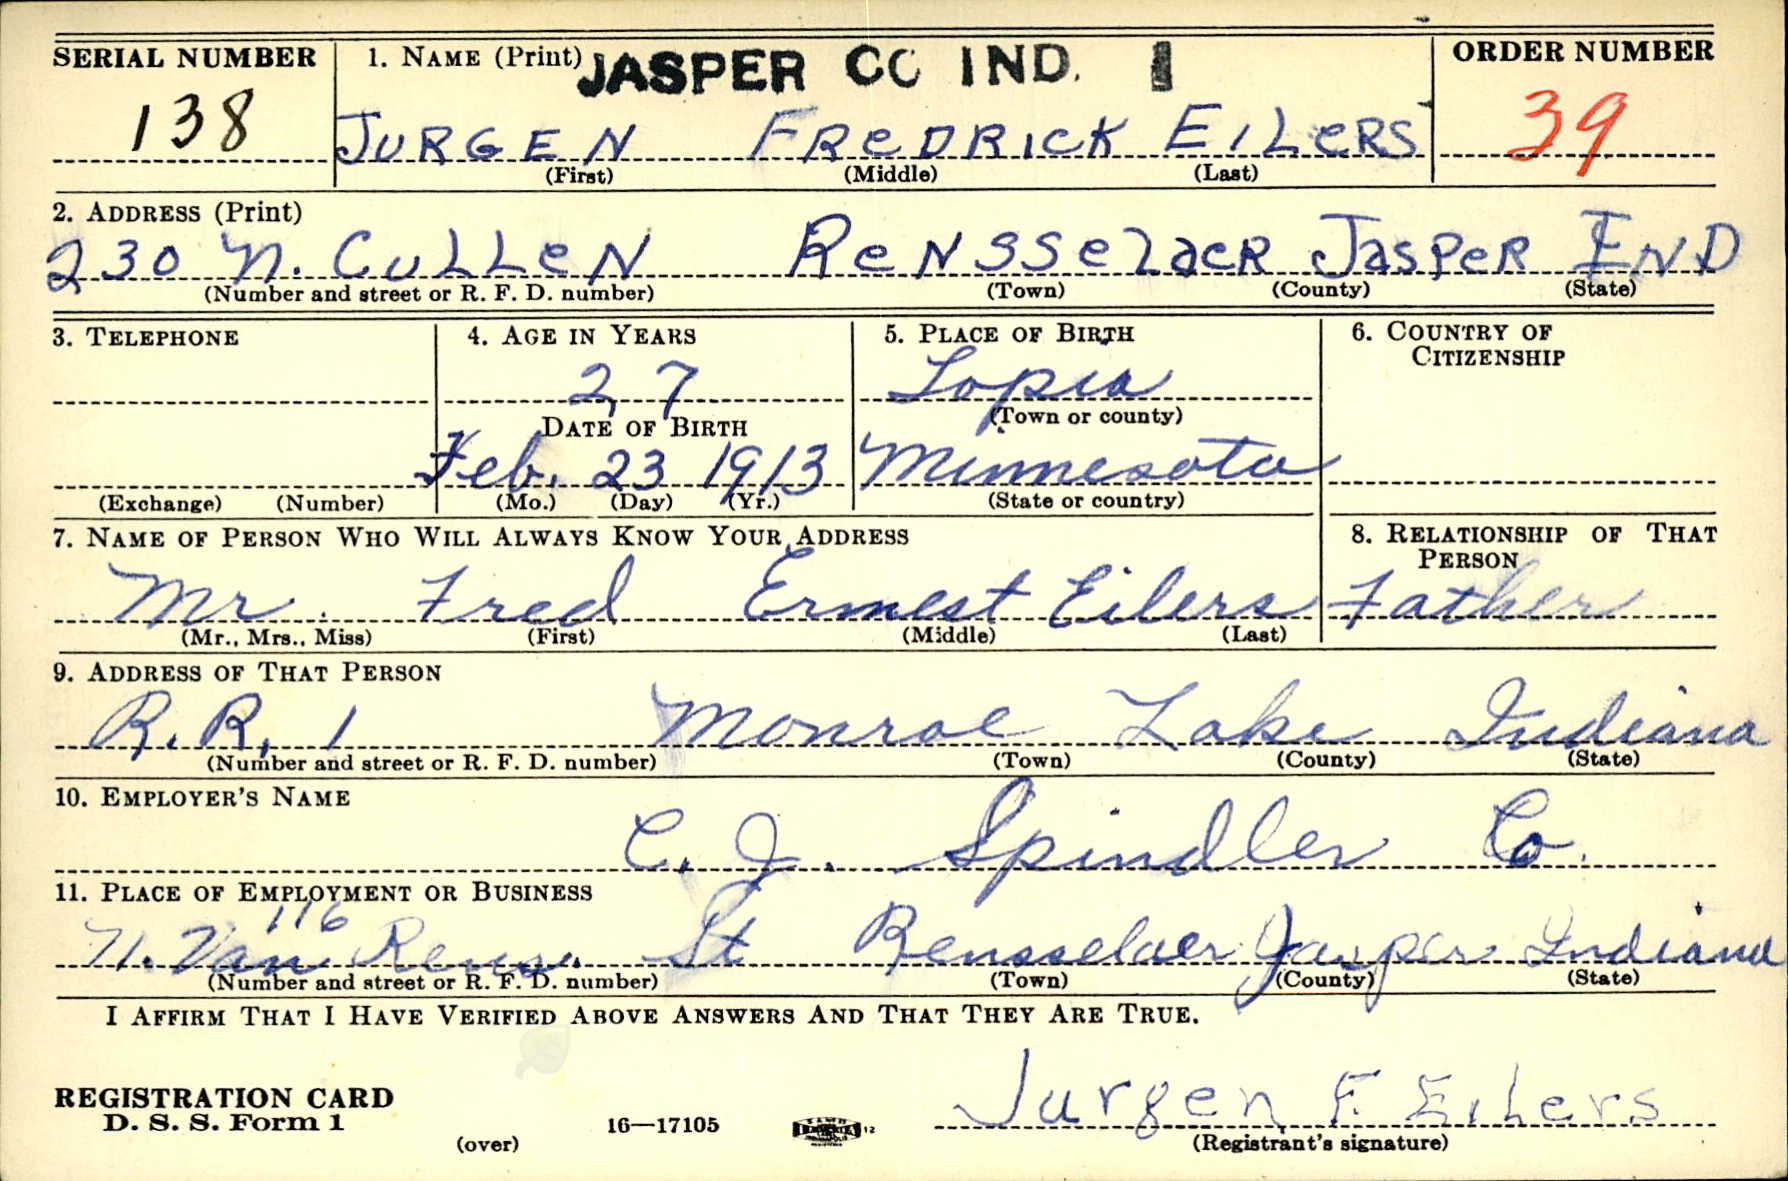 SERIAL NUMBER
1. NAME (Print)
JASPER CO IND. 1
ORDER NUMBER
138
JURGEN FREDRICK EILERS
39
(First) (Middle) (Last)
2. ADDRESS (Print)
230 N. CULLEN RENSSELAER JASPER IND
(Number and street or R. F. D. number) (Town) (County) (State)
3. TELEPHONE
4. AGE IN YEARS
5. PLACE OF BIRTH
6. COUNTRY OF CITIZENSHIP
27
Lopia
DATE OF BIRTH
(Town or county)
Feb. 23 1913
Minnesota
(Exchange) (Number)
(Mo.) (Day) (Yr.)
(State or country)
7. NAME OF PERSON WHO WILL ALWAYS KNOW YOUR ADDRESS
8. RELATIONSHIP OF THAT PERSON
Mr. Fred Ernest Eilers
Father
(Mr., Mrs., Miss) (First) (Middle) (Last)
9. ADDRESS OF THAT PERSON
R. R. 1 Monroe Lake Indiana
(Number and street or R. F. D. number) (Town) (County) (State)
10. EMPLOYER'S NAME
C. J. Spindler Co.
11. PLACE OF EMPLOYMENT OR BUSINESS
116
N. Van Rens. St Rensselaer Jasper Indiana
(Number and street or R. F. D. number) (Town) (County) (State)
I AFFIRM THAT I HAVE VERIFIED ABOVE ANSWERS AND THAT THEY ARE TRUE.
REGISTRATION CARD
D. S. S. Form 1
(over)
16—17105
12
Jurgen F. Eilers
(Registrant's signature)